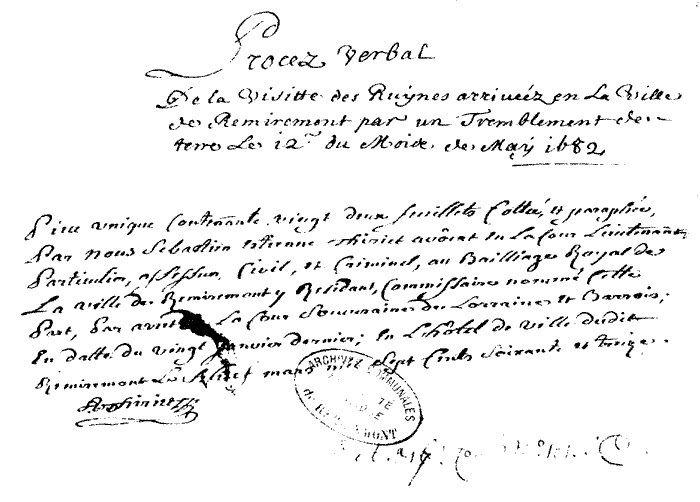 Procez verbal
De la Visitte des Ruÿnes arriveéz en La Ville
de Remiremont par un Tremblement de
terre Le 12e du Mois de Maÿ 1682
Piece unique Contenante vingt deux feuillets Cottée, et paraphée,
Par nous Sebastien Estienne Thiriet avocat en La Cour Lieutenant
Particulier, assesseur Civil, et Criminel, au Bailliage Royal de
La ville de Remiremont y Residant, Commissaire nommé Cette
Part, Par La Cour Souveraine de Lorraine et Barrois;
En datte du vingt janvier dernier; En L'hotel de ville dudit
Remiremont Le mars sept Cents Soixante et treize.
Thiriet
ARCHIVES COMMUNALES
de REMIREMONT